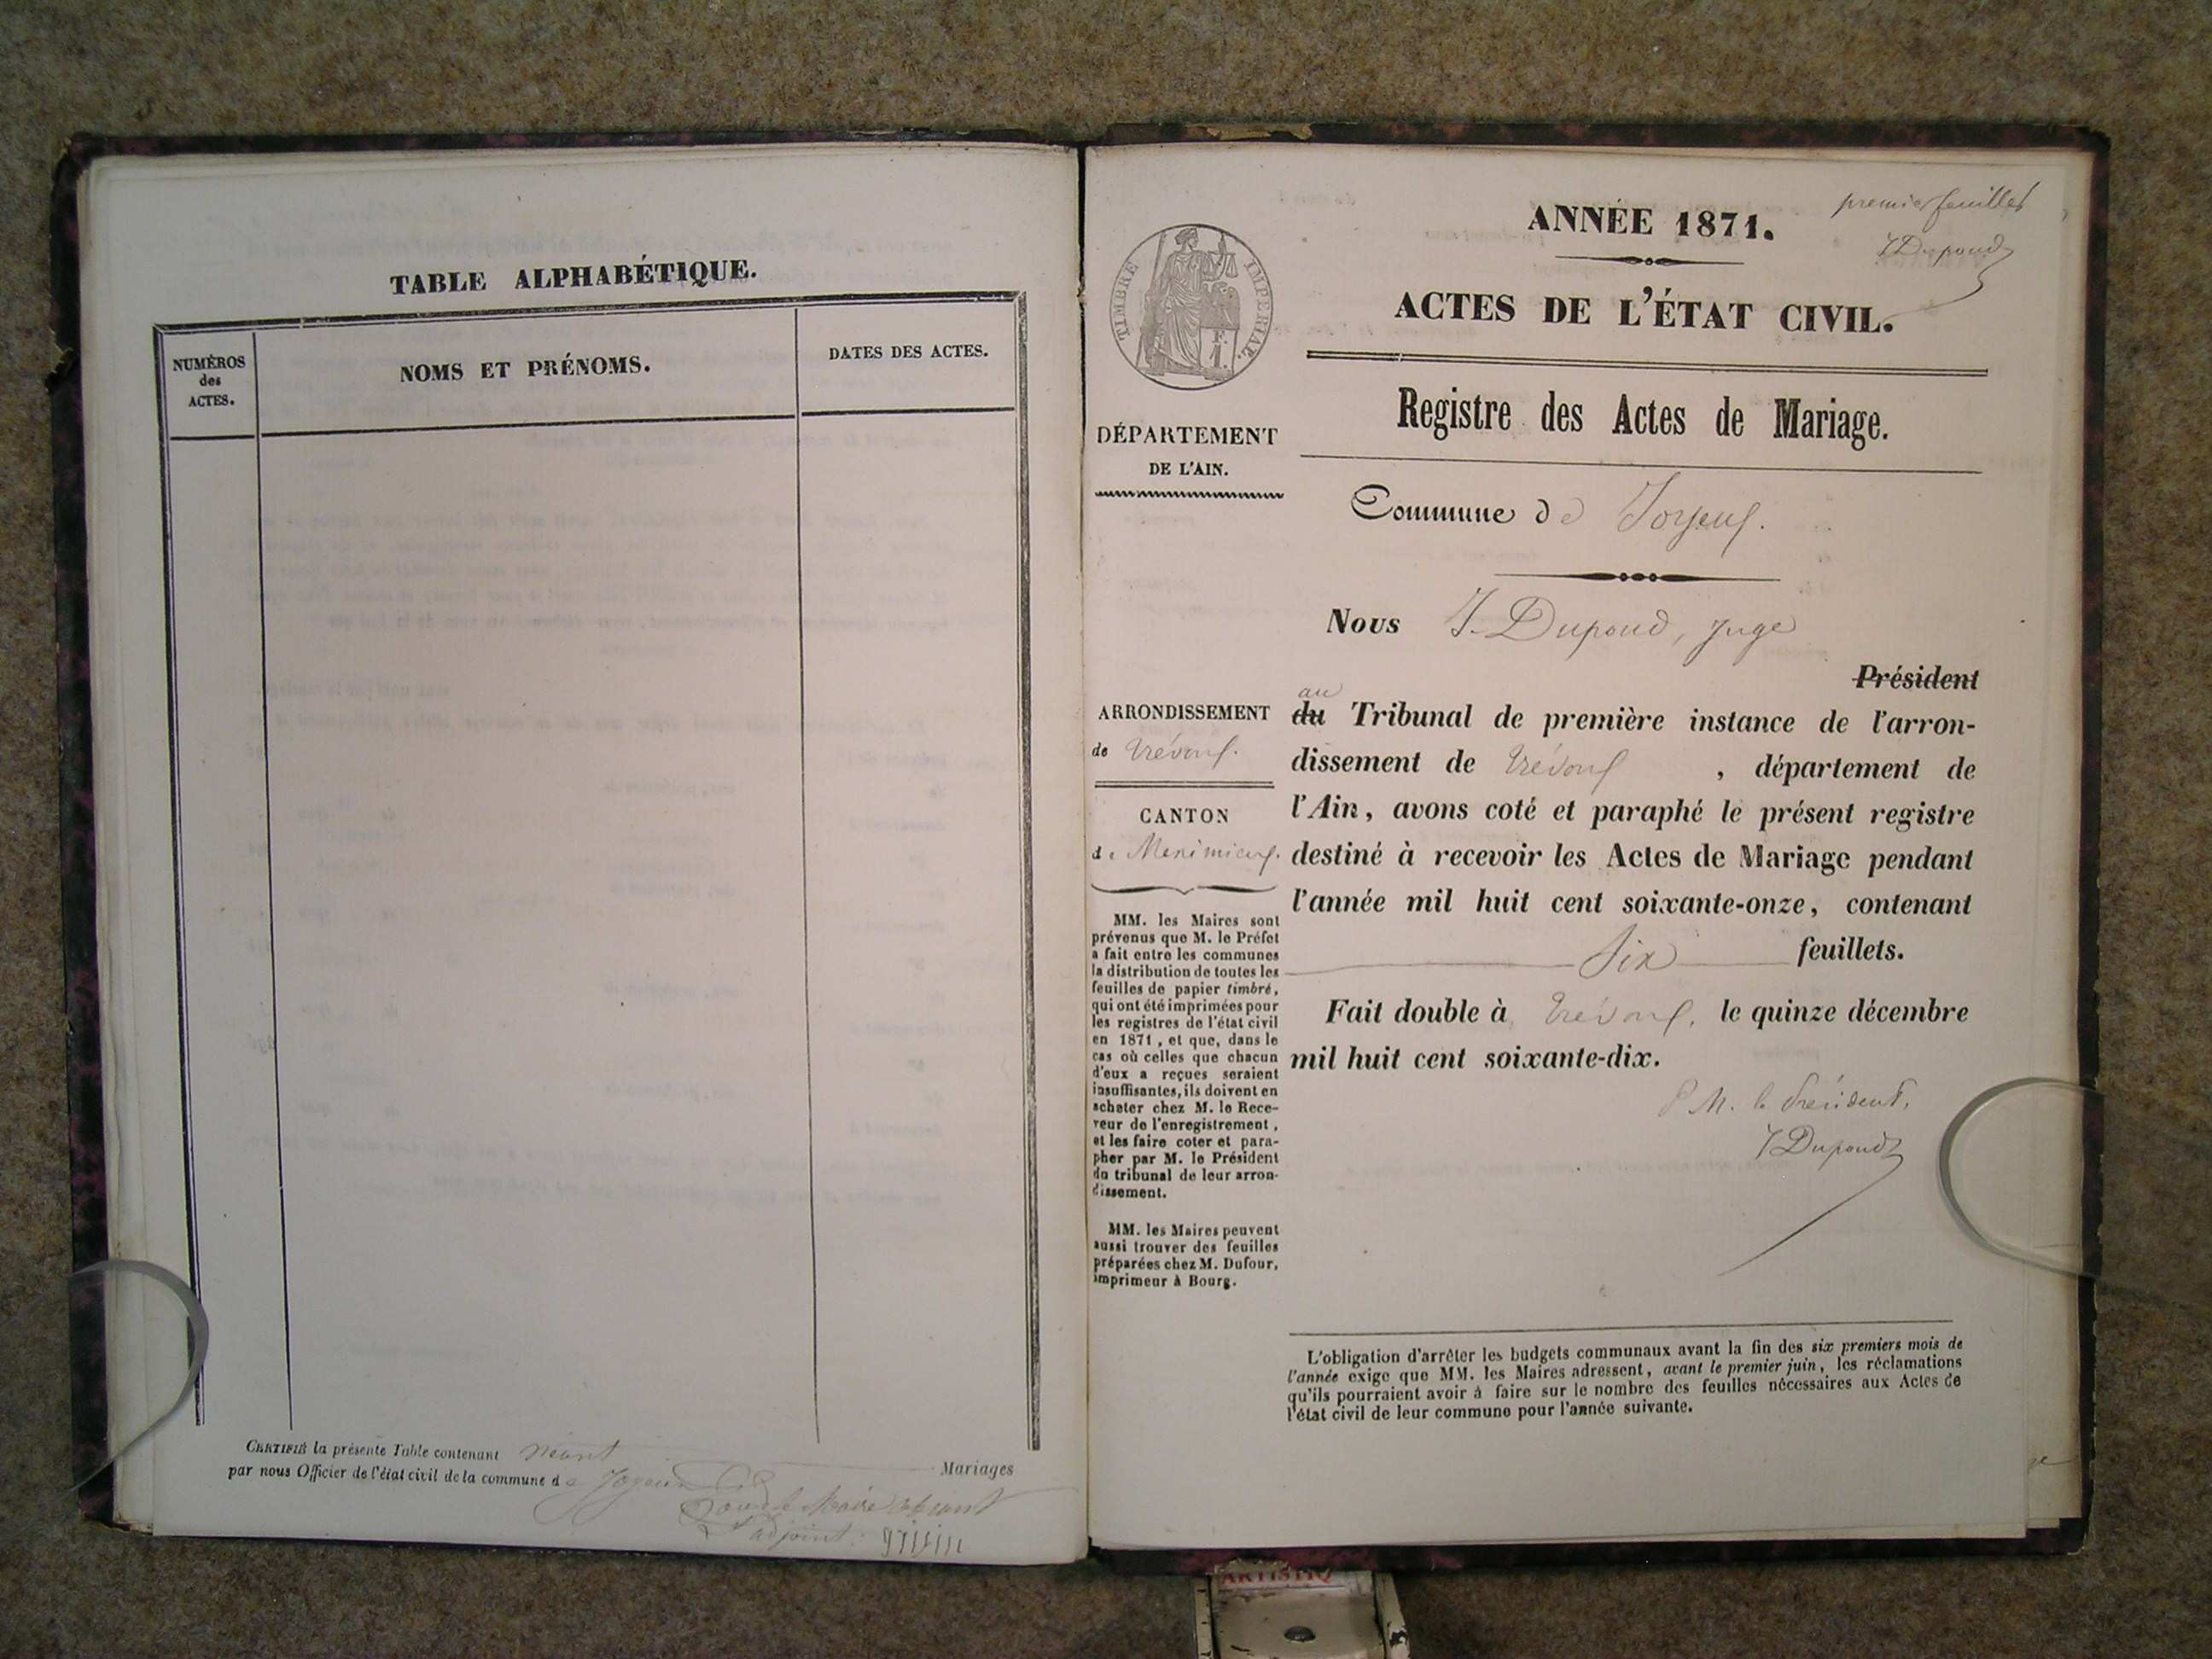 TABLE ALPHABÉTIQUE.
NUMÉROS
des
ACTES.
NOMS ET PRÉNOMS.
DATES DES ACTES.
CERTIFIÉ la présente Table contenant néant
Mariages
par nous Officier de l'état civil de la commune de Joyeux
Pour le Maire absent
L'adjoint
premier feuillet
J Dupond
ANNÉE 1871.
ACTES DE L'ÉTAT CIVIL.
TIMBRE IMPERIAL.
Registre des Actes de Mariage.
DÉPARTEMENT
DE L'AIN.
Commune de Joyeux.
Nous J. Dupond, juge
Président
au
du Tribunal de première instance de l'arron-
dissement de Trévoux, département de
l'Ain, avons coté et paraphé le présent registre
destiné à recevoir les Actes de Mariage pendant
l'année mil huit cent soixante-onze, contenant
Six feuillets.
Fait double à Trévoux, le quinze décembre
mil huit cent soixante-dix.
P M. le Président,
J Dupond
ARRONDISSEMENT
de Trévoux.
CANTON
de Meximieux.
MM. les Maires sont
prévenus que M. le Préfet
a fait entre les communes
la distribution de toutes les
feuilles de papier timbré,
qui ont été imprimées pour
les registres de l'état civil
en 1871, et que, dans le
cas où celles que chacun
d'eux a reçues seraient
insuffisantes, ils doivent en
acheter chez M. le Rece-
veur de l'enregistrement,
et les faire coter et para-
pher par M. le Président
du tribunal de leur arron-
dissement.
MM. les Maires peuvent
aussi trouver des feuilles
préparées chez M. Dufour,
imprimeur à Bourg.
L'obligation d'arrêter les budgets communaux avant la fin des six premiers mois de
l'année exige que MM. les Maires adressent, avant le premier juin, les réclamations
qu'ils pourraient avoir à faire sur le nombre des feuilles nécessaires aux Actes de
l'état civil de leur commune pour l'année suivante.
ARTISTIQ